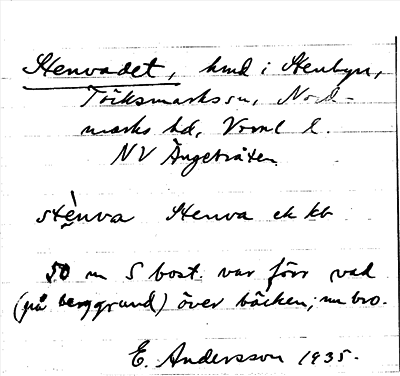 Stenvadet, hmd i Stenbyn,
Töcksmarks sn, Nord-
marks hd, Vrml l.
NV Ängeträten
stènva Stenva ek kb
50 m S bost. var förr vad
(på berggrund) över bäcken; nu bro.
E. Andersson 1935.